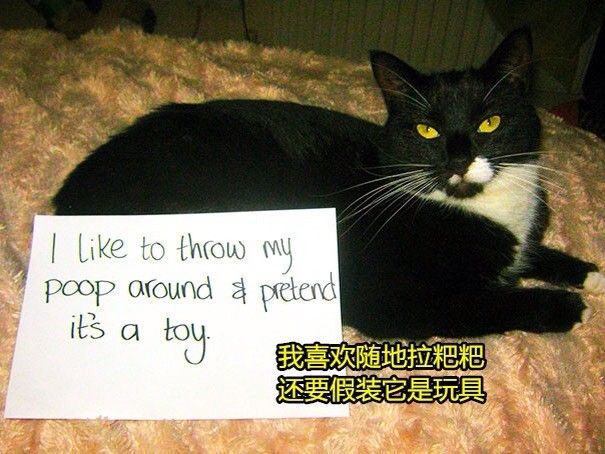 I like to throw my
poop around & pretend
it's a toy.
我喜欢随地拉粑粑
还要假装它是玩具